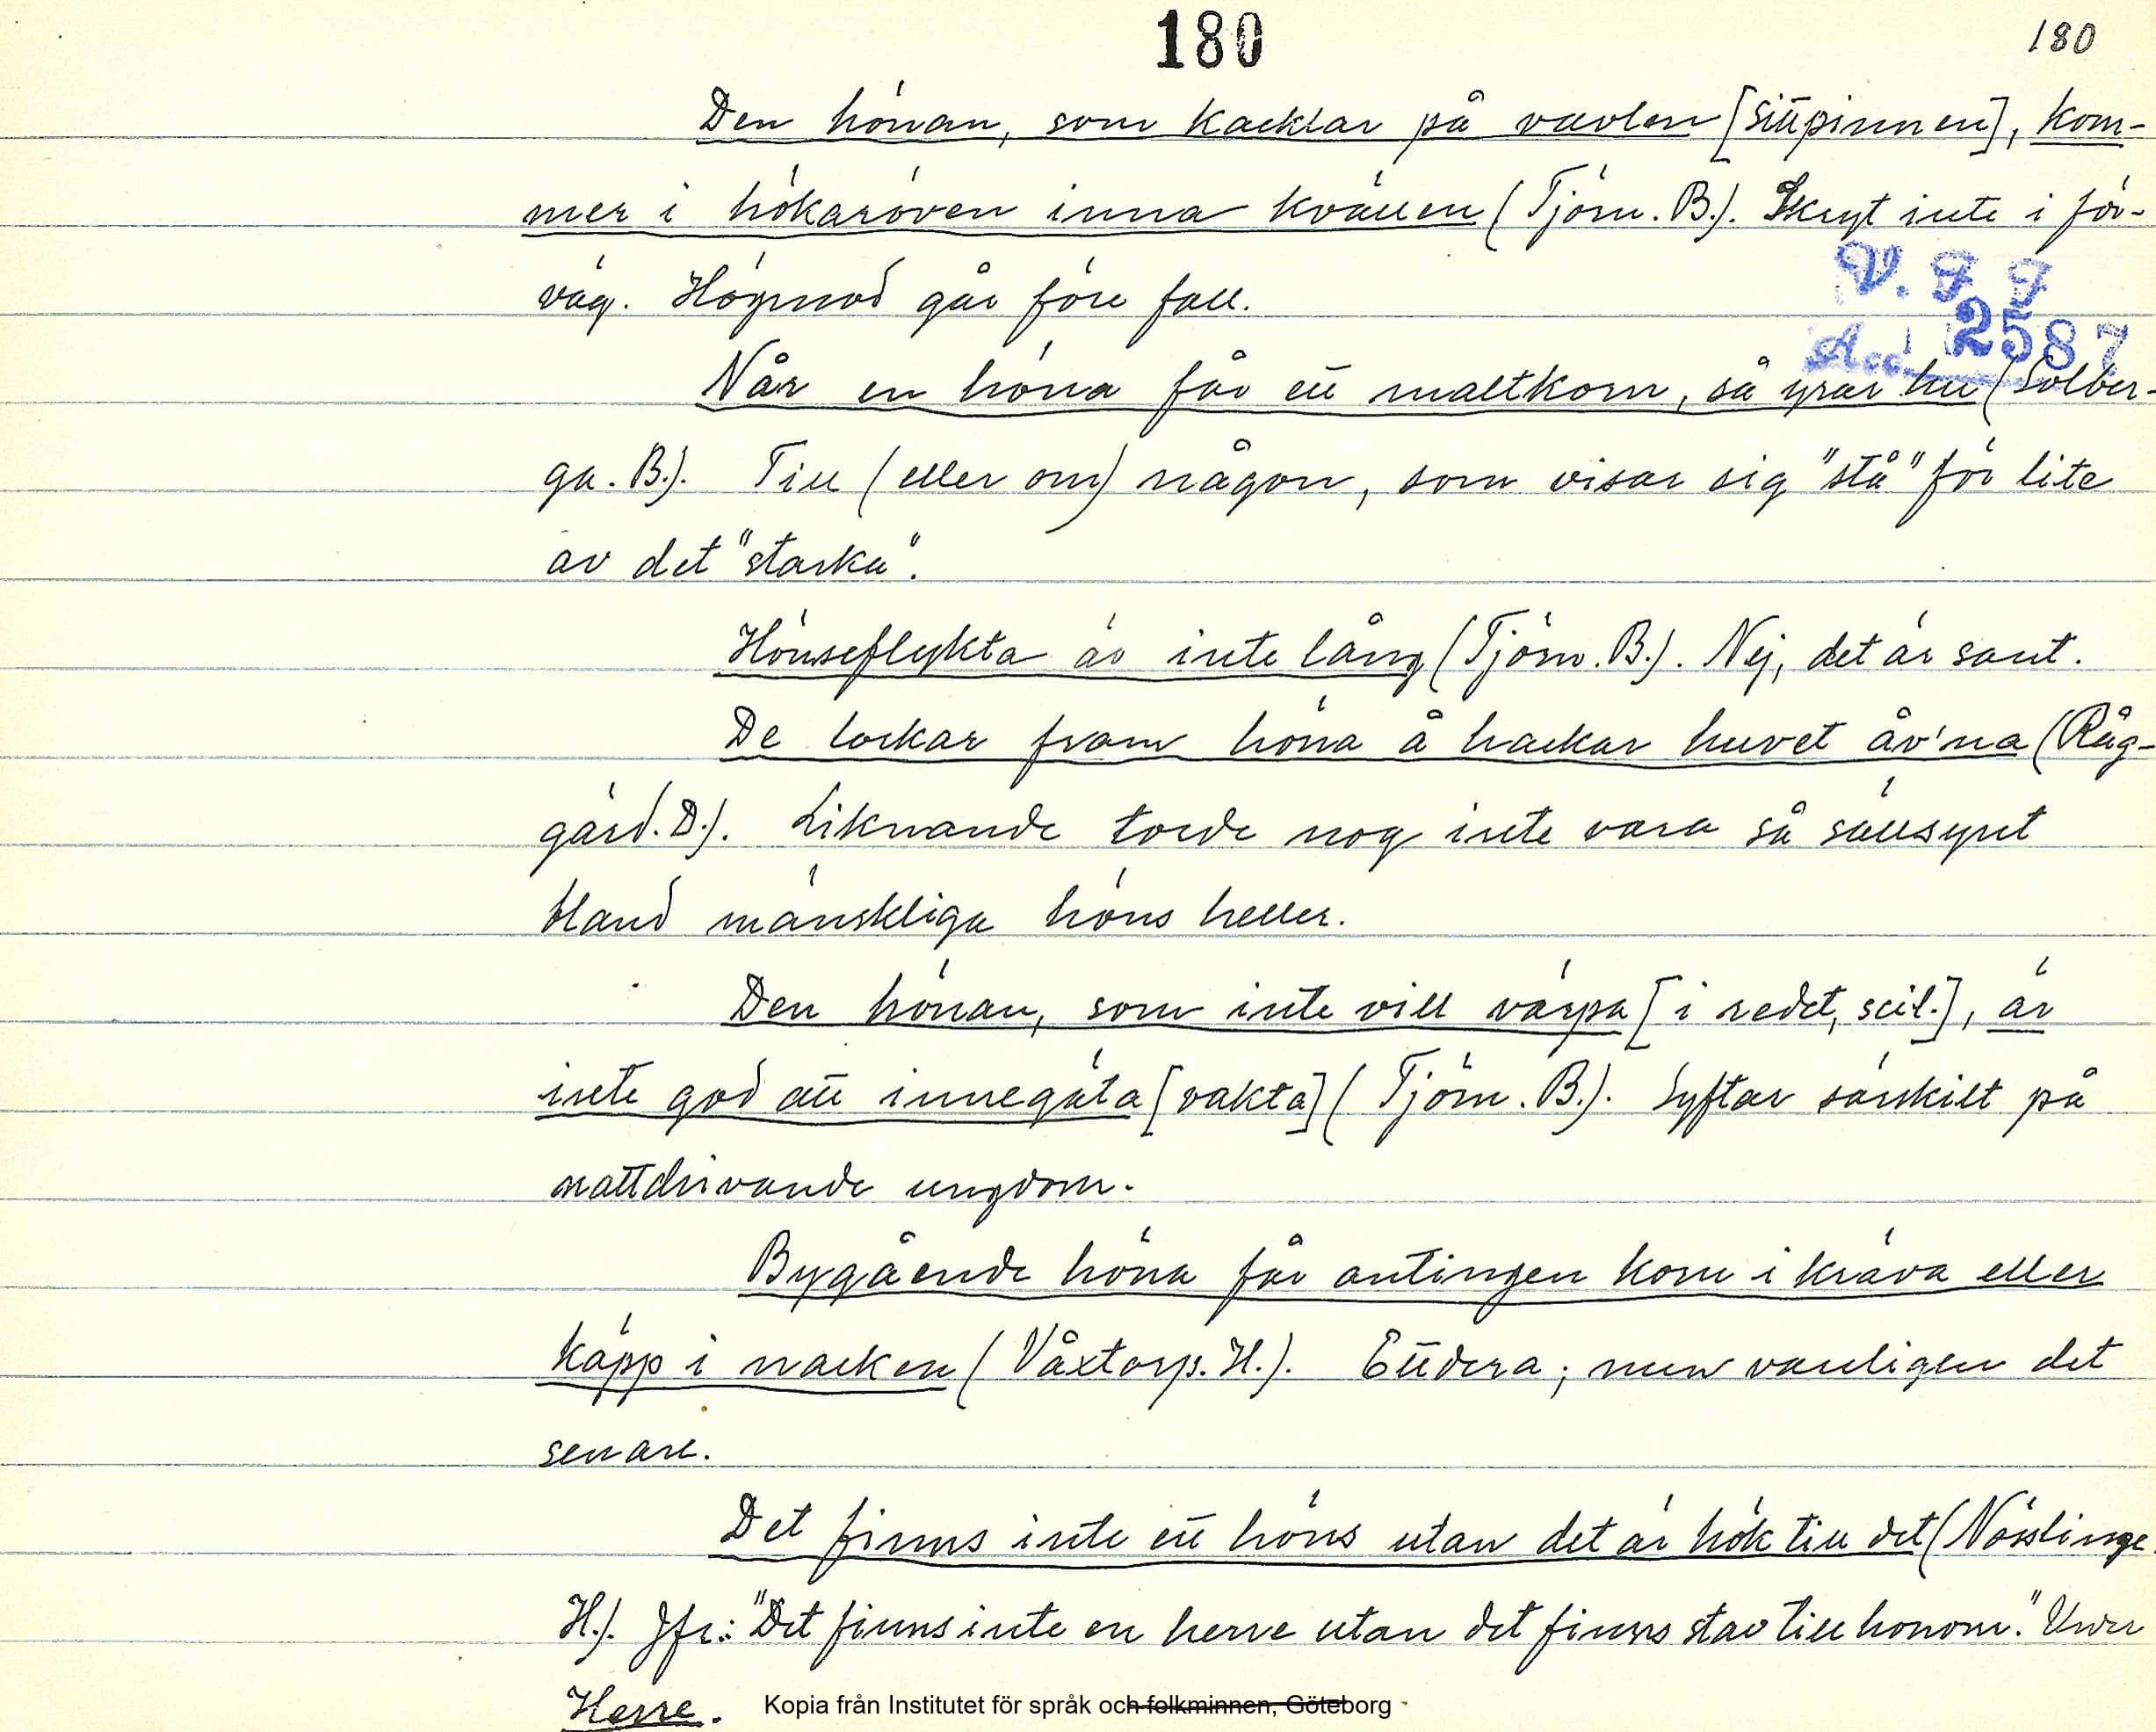 180
180
Den hönan, som kacklar på vavlen [sittpinnen], kom-
mer i hökaröven inna kvällen (Tjörn. B.). Skryt inte i för-
väg. Högmod går före fall.
V. F. F.
Acc. 2587
Når en höna får ett maltkorn, så yrar hu (Solber-
ga. B.). Till (eller om) någon, som visar sig "stå" för lite
av det "starka".
Hönseflykta är inte lång (Tjörn. B.). Nej, det är sant.
De lockar fram höna å hackar huvet åv'na (Råg-
gärd. D.). Liknande torde nog inte vara så sällsynt
bland mänskliga höns heller.
Den hönan, som inte vill värpa [i redet, scil.], är
inte god att innegäta [vakta] (Tjörn. B.). Syftar särskilt på
nattdrivande ungdom.
Bygående höna får antingen korn i kräva eller
käpp i nacken (Våxtorp. H.). Ettdera; men vanligen det
senare.
Det finns inte ett höns utan det är hök till det (Nösslinge.
H.). Jfr.: "Det finns inte en herre utan det finns stav till honom." Under
Herre.
Kopia från Institutet för språk och folkminnen, Göteborg